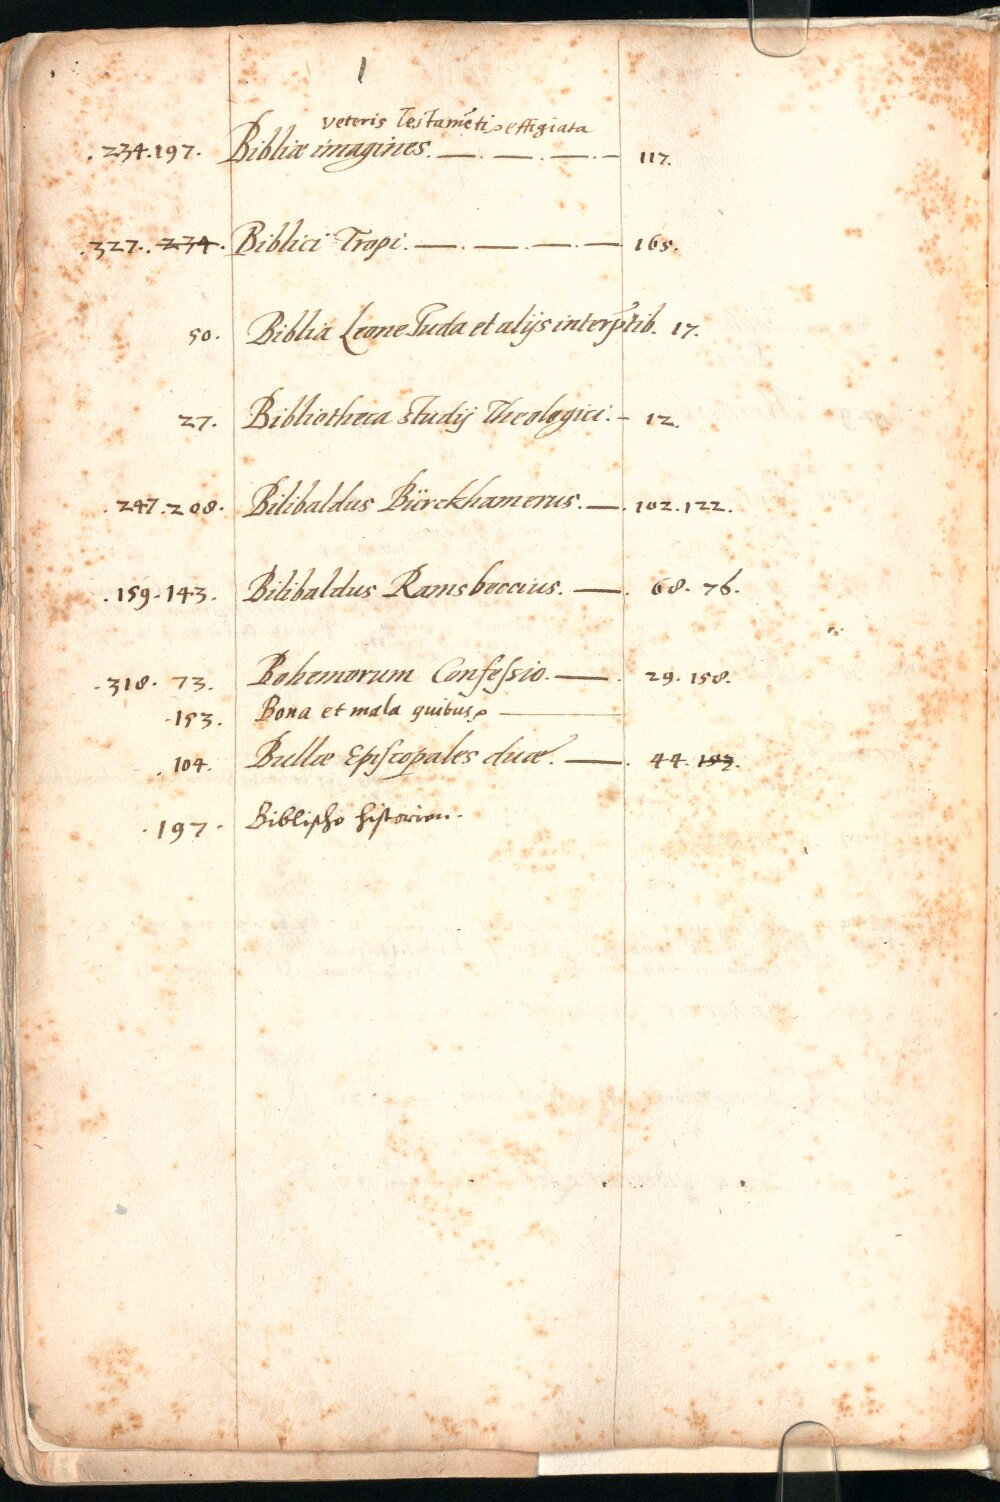 veteris Testamẽti effigiata
.234.197. Bibliæ imagines. — . — . — . — 117.
.327. 234. Biblici Tropi. — . — . — . — 165.
50. Biblia Leone Juda et alijs interp̃tib. 17.
27. Bibliotheca studij Theologici. – 12.
.247.208. Bilibaldus Bürckhamerus. — . 102.122.
.159.143. Bilibaldus Ramsbeccius. — . 68. 76.
.318. 73. Bohemorum Confeſsio. — . 29. 158.
.153. Bona et mala quibus
. 104. Bullæ Epiſcopales duæ. — . 44. 153.
.197. Bibliſche hiſtorien.